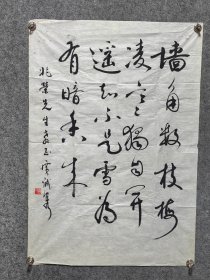 墙角数枝梅
凌寒独自开
遥知不是雪为
有暗香来
先生